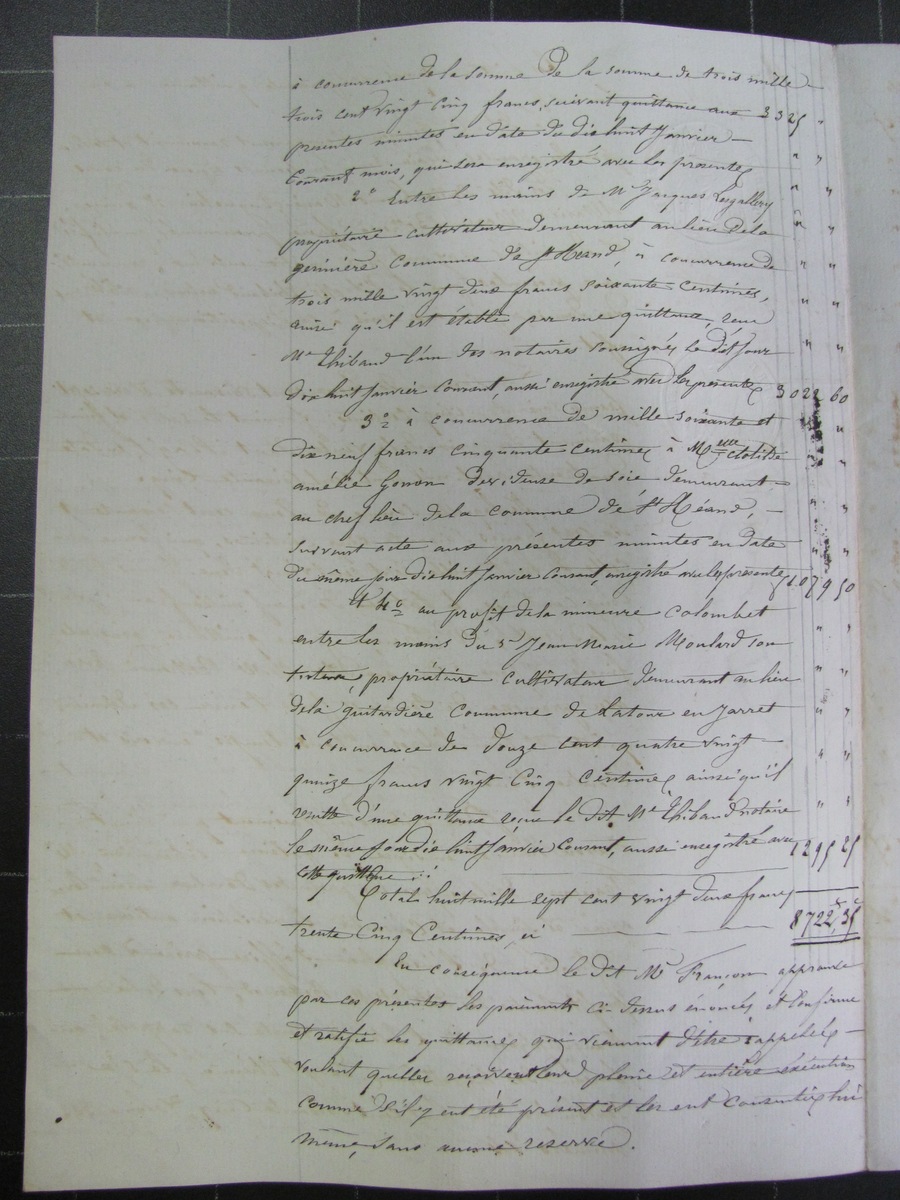 à concurrence de la somme de la somme de trois mille
trois cent vingt cinq francs, suivant quittance aux 3325 "
présentes minutes en date du dix huit Janvier — " "
Courant mois, qui sera enregistré avec les présentes " "
2° Entre les mains de Mr Jacques " "
propriétaire cultivateur demeurant au lieu de la " "
commune de St Héand, à concurrence de " "
trois mille vingt deux francs soixante centimes, " "
ainsi qu'il est établi par une quittance, reçue " "
Me Thibaud l'un des notaires soussignés le dit jour " "
dix huit Janvier courant, aussi enregistré avec les présentes 3022 60
3° à concurrence de mille soixante et "
dix neuf francs cinquante centimes à Melle Clotilde "
amélie Gonon devideuse de soie demeurant — "
au chef lieu de la commune de St Héand, — "
suivant acte aux présentes minutes en date "
du même jour dix huit Janvier courant, enregistré avec les présentes 1079 50
Et 4° au profit de la mineure Colombet
entre les mains du Sr Jean Marie Moulard son " "
tuteur, propriétaire cultivateur demeurant au lieu " "
de la guitardière commune de Latour en Jarret " "
à concurrence de douze cent quatre vingt " "
quinze francs vingt cinq centimes, ainsi qu'il
résulte d'une quittance reçue le dit Me Thibaud notaire " "
le même jour dix huit Janvier courant, aussi enregistré avec 1295 25
cette quittance
Total huit mille sept cent vingt deux francs
trente cinq Centimes, ci 8722,35
En conséquence le dit Mr Françon approuve
par ces présentes les paiements ci-dessus énoncés, et confirme
et ratifie les quittances qui viennent d'être rappelées —
voulant qu'elles reçoivent leur pleine et entière exécution
comme s'il y eut été présent et les eut consenties lui
même, sans aucune reserve.